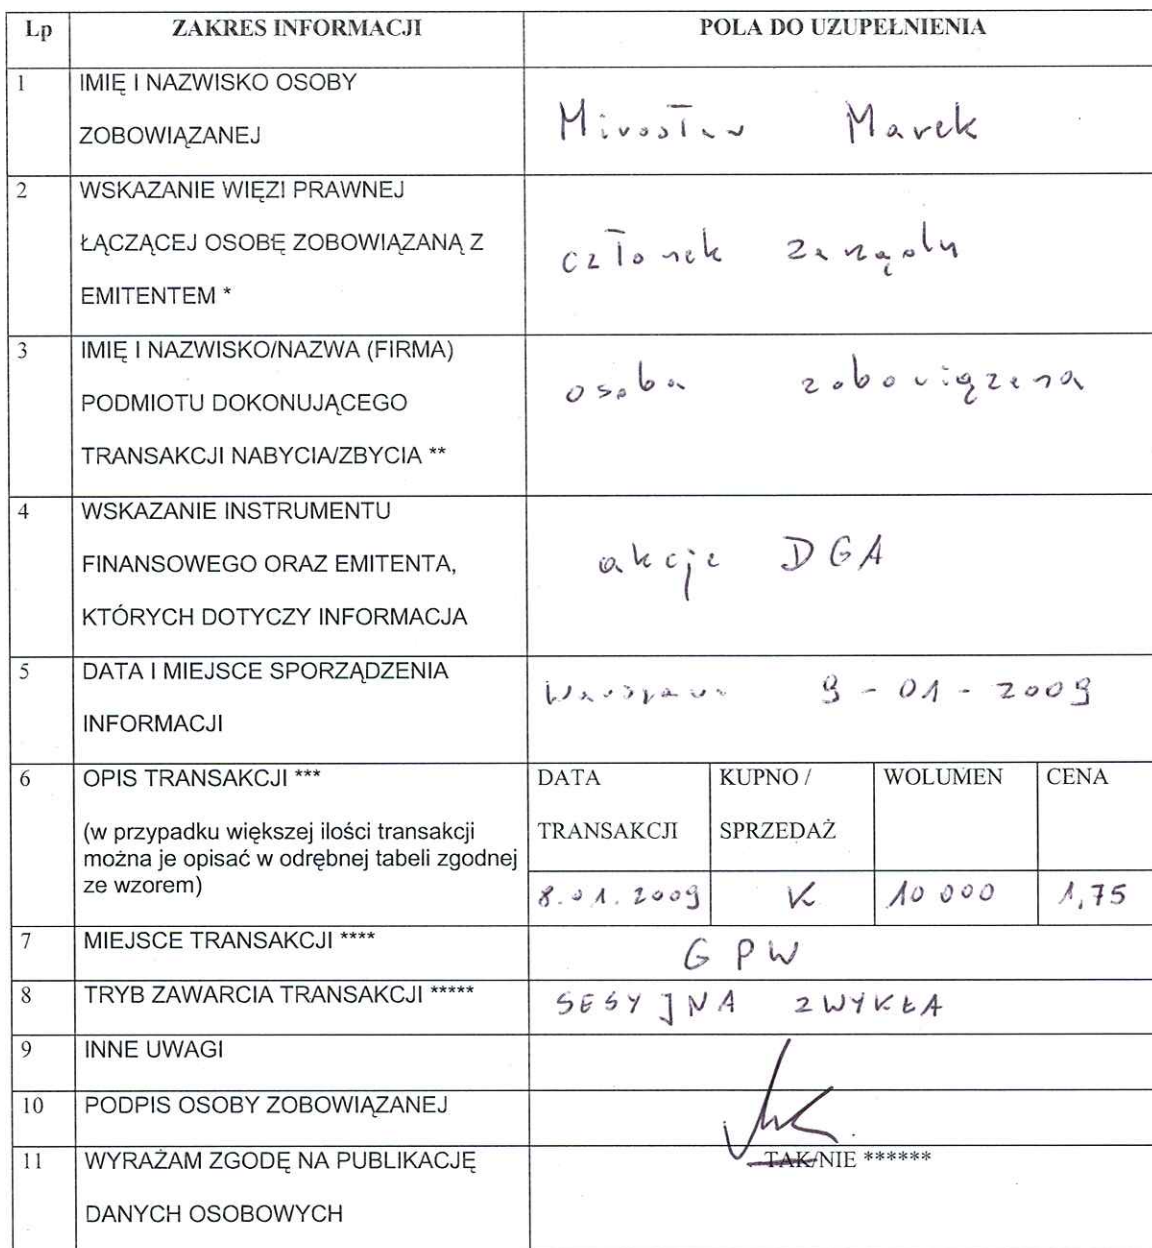 Lp ZAKRES INFORMACJI POLA DO UZUPEŁNIENIA
1 IMIĘ I NAZWISKO OSOBY
ZOBOWIĄZANEJ
Mirosław Marek
2 WSKAZANIE WIĘZI PRAWNEJ
ŁĄCZĄCEJ OSOBĘ ZOBOWIĄZANĄ Z
EMITENTEM *
członek zarządu
3 IMIĘ I NAZWISKO/NAZWA (FIRMA)
PODMIOTU DOKONUJĄCEGO
TRANSAKCJI NABYCIA/ZBYCIA **
osoba zobowiązana
4 WSKAZANIE INSTRUMENTU
FINANSOWEGO ORAZ EMITENTA,
KTÓRYCH DOTYCZY INFORMACJA
akcje DGA
5 DATA I MIEJSCE SPORZĄDZENIA
INFORMACJI
Warszawa 9-01-2009
6 OPIS TRANSAKCJI ***
(w przypadku większej ilości transakcji
można je opisać w odrębnej tabeli zgodnej
ze wzorem)
DATA
TRANSAKCJI
KUPNO /
SPRZEDAŻ
WOLUMEN
CENA
8.01.2009 K 10 000 1,75
7 MIEJSCE TRANSAKCJI **** GPW
8 TRYB ZAWARCIA TRANSAKCJI ***** SESYJNA ZWYKŁA
9 INNE UWAGI
10 PODPIS OSOBY ZOBOWIĄZANEJ
11 WYRAŻAM ZGODĘ NA PUBLIKACJĘ
DANYCH OSOBOWYCH
TAK/NIE ******